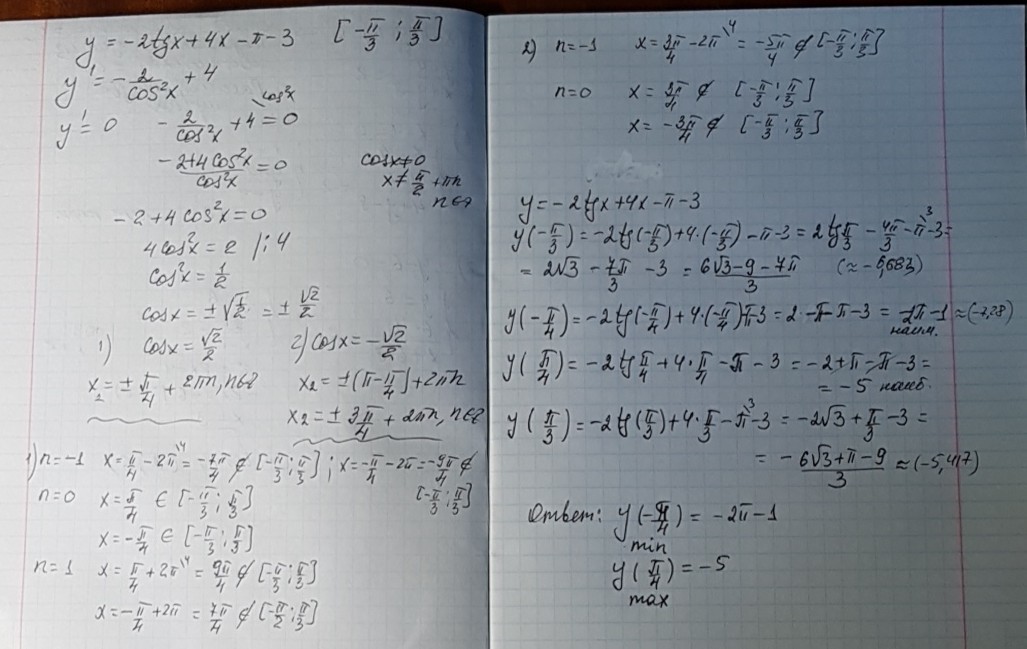 y = -2tgx + 4x - π - 3 [-π/3 ; π/3]
y' = -2/cos²x + 4
y' = 0 -2/cos²x + 4 = 0 cos²x
(-2+4cos²x)/cos²x = 0 cosx ≠ 0
x ≠ π/2 + πn
n∈z
-2 + 4cos²x = 0
4cos²x = 2 /:4
cos²x = 1/2
cosx = ±√(1/2) = ±√2/2
1) cosx = √2/2 2) cosx = -√2/2
x = ±π/4 + 2πn, n∈z x₂ = ±(π - π/4) + 2πn
x₂ = ±3π/4 + 2πn, n∈z
1) n=-1 x = π/4 - 2π\4 = -7π/4 ∉ [-π/3 ; π/3] ; x = -π/4 - 2π = -9π/4 ∉
[-π/3 ; π/3]
n=0 x = π/4 ∈ [-π/3 ; π/3]
x = -π/4 ∈ [-π/3 ; π/3]
n=1 x = π/4 + 2π\4 = 9π/4 ∉ [-π/3 ; π/3]
x = -π/4 + 2π = 7π/4 ∉ [-π/2 ; π/3]
2) n=-1 x = 3π/4 - 2π\4 = -5π/4 ∉ [-π/3 ; π/3]
n=0 x = 3π/4 ∉ [-π/3 ; π/3]
x = -3π/4 ∉ [-π/3 ; π/3]
y = -2tgx + 4x - π - 3
y(-π/3) = -2tg(-π/3) + 4·(-π/3) - π - 3 = 2tgπ/3 - 4π/3 - π\3 - 3 =
= 2√3 - 7π/3 - 3 = (6√3 - 9 - 7π)/3 (≈ -6,683)
y(-π/4) = -2tg(-π/4) + 4·(-π/4) - π - 3 = 2 - π - π - 3 = -2π - 1 ≈ (-7,28)
наим.
y(π/4) = -2tgπ/4 + 4·π/4 - π - 3 = -2 + π - π - 3 =
= -5 наиб.
y(π/3) = -2tg(π/3) + 4·π/3 - π\3 - 3 = -2√3 + π/3 - 3 =
= (-6√3 + π - 9)/3 ≈ (-5,417)
Ответ: y(-π/4) = -2π - 1
min
y(π/4) = -5
max